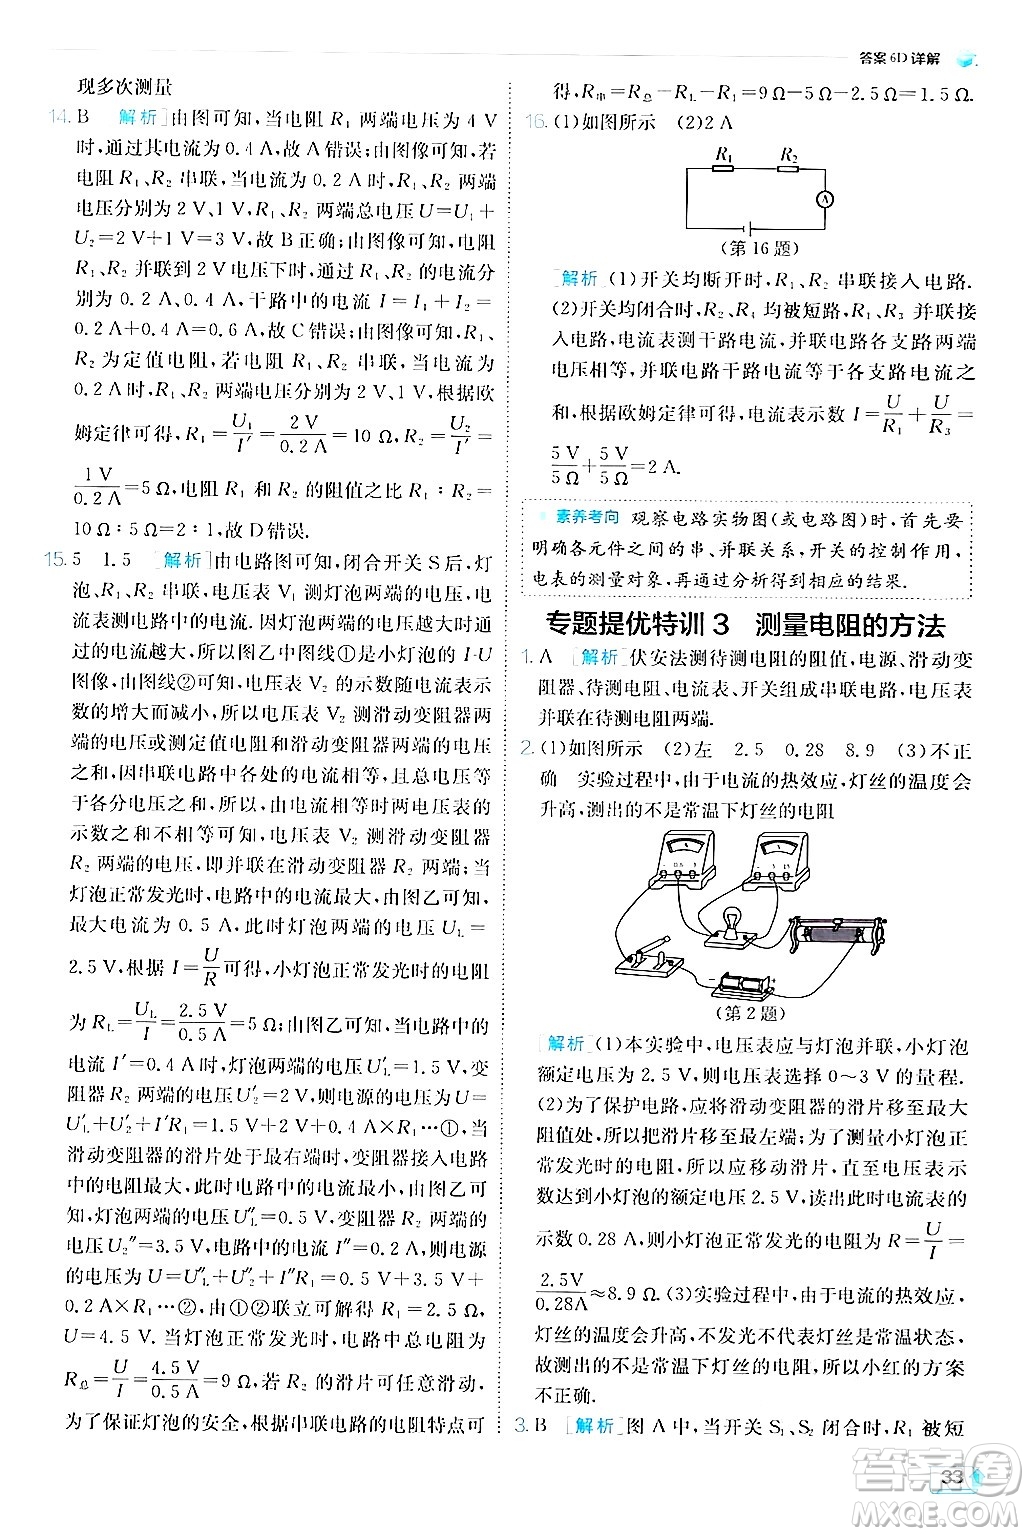 答案 6D 详解
现多次测量
14. B [解析] 由图可知,当电阻 R₁ 两端电压为 4 V
时,通过其电流为 0.4 A,故 A 错误;由图像可知,若
电阻 R₁、R₂ 串联,当电流为 0.2 A 时,R₁、R₂ 两端
电压分别为 2 V、1 V,R₁、R₂ 两端总电压 U=U₁+
U₂=2 V+1 V=3 V,故 B 正确;由图像可知,电阻
R₁、R₂ 并联到 2 V 电压下时,通过 R₁、R₂ 的电流
分别为 0.2 A、0.4 A,干路中的电流 I=I₁+I₂=
0.2 A+0.4 A=0.6 A,故 C 错误;由图像可知,R₁、
R₂ 为定值电阻,若电阻 R₁、R₂ 串联,当电流为
0.2 A 时,R₁、R₂ 两端电压分别为 2 V、1 V,根据欧
姆定律可得,R₁=U₁/I′=2 V/0.2 A=10 Ω,R₂=U₂/I′=
1 V/0.2 A=5 Ω,电阻 R₁ 和 R₂ 的阻值之比 R₁∶R₂=
10 Ω∶5 Ω=2∶1,故 D 错误.
15. 5 1.5 [解析] 由电路图可知,闭合开关 S 后,灯
泡、R₁、R₂ 串联,电压表 V₁ 测灯泡两端的电压,电流
表测电路中的电流. 因灯泡两端的电压越大时通过
的电流越大,所以由图像可知,图线①为小灯泡的 I-U
图像,图线②可知,电压表 V₂ 的示数随电流表示
数的增大而减小,所以电压表 V₂ 测滑动变阻器两
端的电压,或测定值电阻和滑动变阻器两端的电压
之和,因串联电路中各处的电流相等,且总电压等
于各分电压之和,所以,由电流相等时两电压表的
示数之和不相等可知,电压表 V₂ 测滑动变阻器
R₂ 两端的电压,即并联在滑动变阻器 R₂ 两端;当
灯泡正常发光时,电路中的电流最大,由图乙可知,
最大电流为 0.5 A,此时灯泡两端的电压 U_L=
2.5 V,根据 I=U/R可得,小灯泡正常发光时的电阻
为 R_L=U_L/I=2.5 V/0.5 A=5 Ω;由图乙可知,电路中的
电流 I′=0.4 A 时,灯泡两端的电压 U′_L=1.5 V,变
阻器 R₂ 两端的电压 U₂′=1 V,则电源的电压 U=
U′_L+U₂′+I′R₁=1.5 V+1 V+0.4 A×R₁…①,当
滑动变阻器的滑片处于最右端时,变阻器接入电路
中的电阻最大,此时电路中的电流最小,由图乙可
知,灯泡两端的电压 U″_L=0.5 V,变阻器 R₂ 两端的
电压 U₂″=3.5 V,电路中的电流 I″=0.2 A,则电源
的电压 U=U″_L+U₂″+I″R₁=0.5 V+3.5 V+
0.2 A×R₁…②,由①②联立可解得 R₁=2.5 Ω,U=
4.5 V. 当灯泡正常发光时,电路中总电阻为
R总=U/I=4.5 V/0.5 A=9 Ω,若 R₂ 的滑片可任意滑动,
为了保证灯泡的安全,根据串联电路的电阻特点可
得,R串=R总-R_L-R₁=9 Ω-5 Ω-2.5 Ω=1.5 Ω.
16. (1)如图所示 (2)2 A
R₁ R₂
A
(第 16 题)
[解析] (1)开关均断开时,R₁、R₂ 串联接入电路.
(2)开关均闭合时,R₂ 被短路,R₁、R₃ 并联接入电
路,电流表测干路电流,并联电路各支路两端
电压相等,并联电路干路电流等于各支路电流之
和,根据欧姆定律可得,电流表示数 I=U/R₁+U/R₃=
5 V/5 Ω+5 V/5 Ω=2 A.
素养考向 观察电路实物图(或电路图)时,首先要
明确各元件之间的串、并联关系,开关的控制作用,
电表的测量对象,再通过分析得到相应的结果.
专题提优特训 3 测量电阻的方法
1. A [解析] 伏安法测待测电阻的阻值,电源、滑动变
阻器、待测电阻、电流表、开关组成串联电路,电压表
并联在待测电阻两端.
2. (1)如图所示 (2)左 2.5 0.28 8.9 (3)不正
确 实验过程中,由于电流的热效应,灯丝的温度会
升高,测出的不是常温下灯丝的电阻
(第 2 题)
[解析] (1)本实验中,电压表应与灯泡并联,小灯泡
额定电压为 2.5 V,则电压表选择 0~3 V 的量程.
(2)为了保护电路,应将滑动变阻器的滑片移至最大
阻值处,所以把滑片移至最左端;为了测量小灯泡
正常发光时的电阻,应移动滑片,直至电压表的示
数达到小灯泡的额定电压 2.5 V,读出此时电流表的
示数 0.28 A,则小灯泡正常发光的电阻为 R=U/I=
2.5V/0.28A≈8.9 Ω. (3)实验过程中,由于电流的热效应,
灯丝的温度会升高,不发光不代表灯丝是常温状态,
故测出的不是常温下灯丝的电阻,所以小红的方案
不正确.
3. B [解析] 图 A 中,当开关 S₁、S₂ 闭合时,R₁ 被短
33
答案圈
MXQE.COM